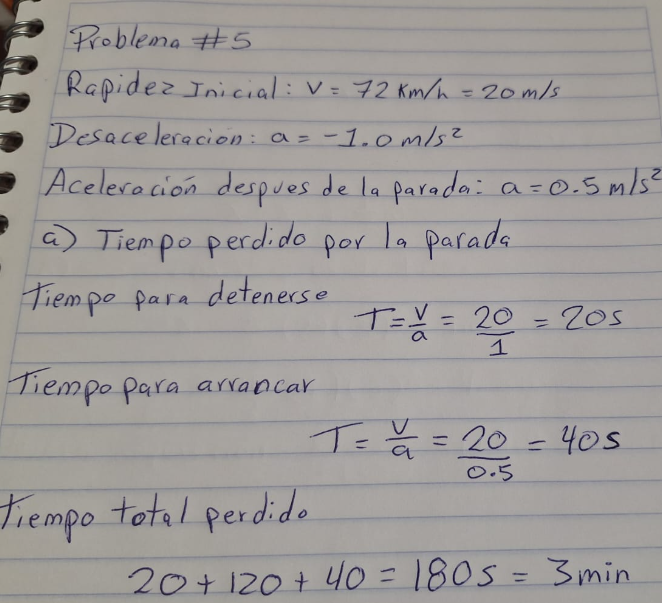 Problema #5
Rapidez Inicial: v = 72 Km/h = 20 m/s
Desaceleracion: a = -1.0 m/s²
Aceleración despues de la parada: a = 0.5 m/s²
a) Tiempo perdido por la parada
Tiempo para detenerse
T = v/a = 20/1 = 20s
Tiempo para arrancar
T = v/a = 20/0.5 = 40s
Tiempo total perdido
20 + 120 + 40 = 180s = 3min